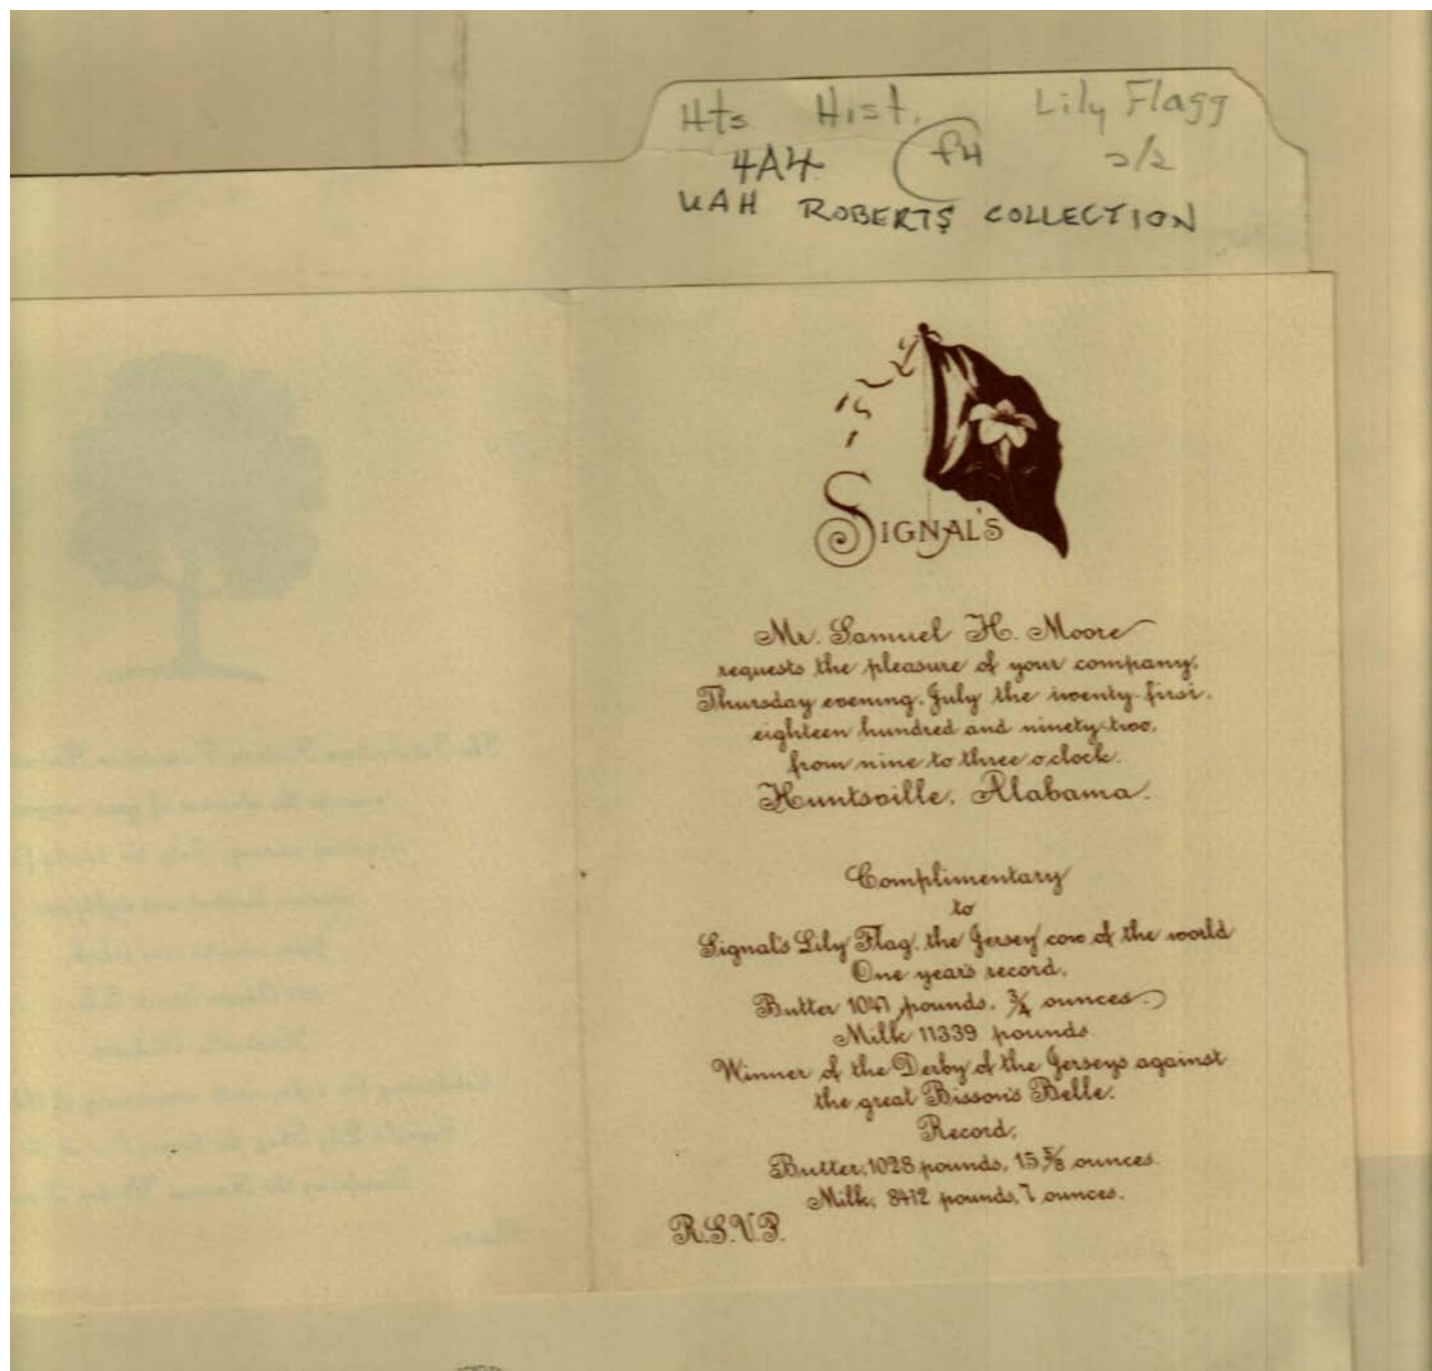 Hts Hist. Lily Flagg
4A4 f4 2/2
UAH ROBERTS COLLECTION
SIGNAL'S
Mr. Samuel H. Moore
requests the pleasure of your company,
Thursday evening, July the twenty-first,
eighteen hundred and ninety-two,
from nine to three o'clock.
Huntsville, Alabama.
Complimentary
to
Signal's Lily Flag, the Jersey cow of the world
One year's record,
Butter 1047 pounds, 3/4 ounces.
Milk 11339 pounds
Winner of the Derby of the Jerseys against
the great Bisson's Belle.
Record;
Butter, 1028 pounds, 15 5/8 ounces.
Milk, 8412 pounds, 7 ounces.
R.S.V.P.